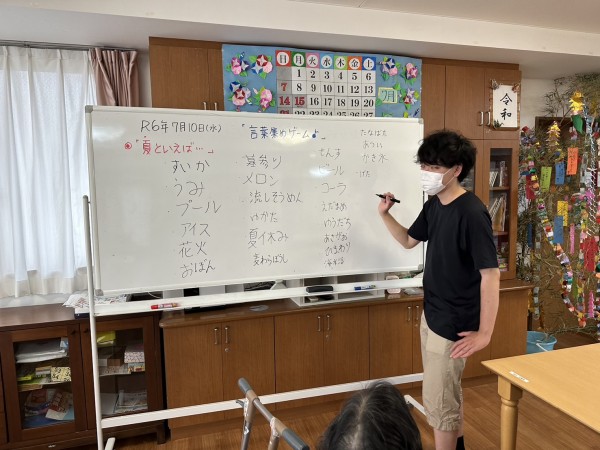 R6年7月10日(水)
"言葉集めゲーム♪"
◎"夏といえば…"
すいか
うみ
プール
アイス
花火
おぼん
墓参り
メロン
流しそうめん
ゆかた
夏休み
麦わらぼうし
せんす
ビール
コーラ
えだまめ
ゆうだち
あさがお
ひまわり
海水浴
たなばた
あつい
かき氷
日月火水木金土
1 2 3 4 5 6
7 8 9 10 11 12 13
14 15 16 17 18 19 20
7月
令和